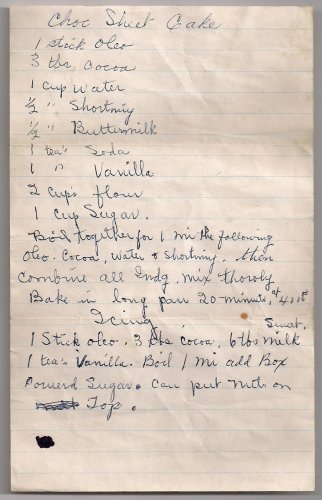 Choc Sheet Cake
1 stick oleo
3 tbs Cocoa
1 cup water
½ " Shortning
½ " Buttermilk
1 tea's Soda
1 " Vanilla
2 cups flour
1 cup Sugar.
Boil together for 1 mi the following
Oleo. Cocoa, water & Shortning. then
combine all Indg. mix thoroly
Bake in long pan 20 minute, at 400
Icing Sweet.
1 Stick oleo. 3 tbs cocoa, 6 tbs milk
1 tea's Vanilla. Boil 1 mi add Box
Powerd Sugar. Can put nuts on
Top.